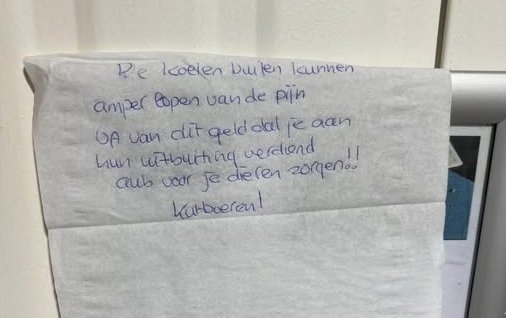 De koeien buiten kunnen
amper lopen van de pijn
van dit geld dat je aan
hun uitbuiting verdiend
aub voor je dieren zorgen!!
Kutboeren!